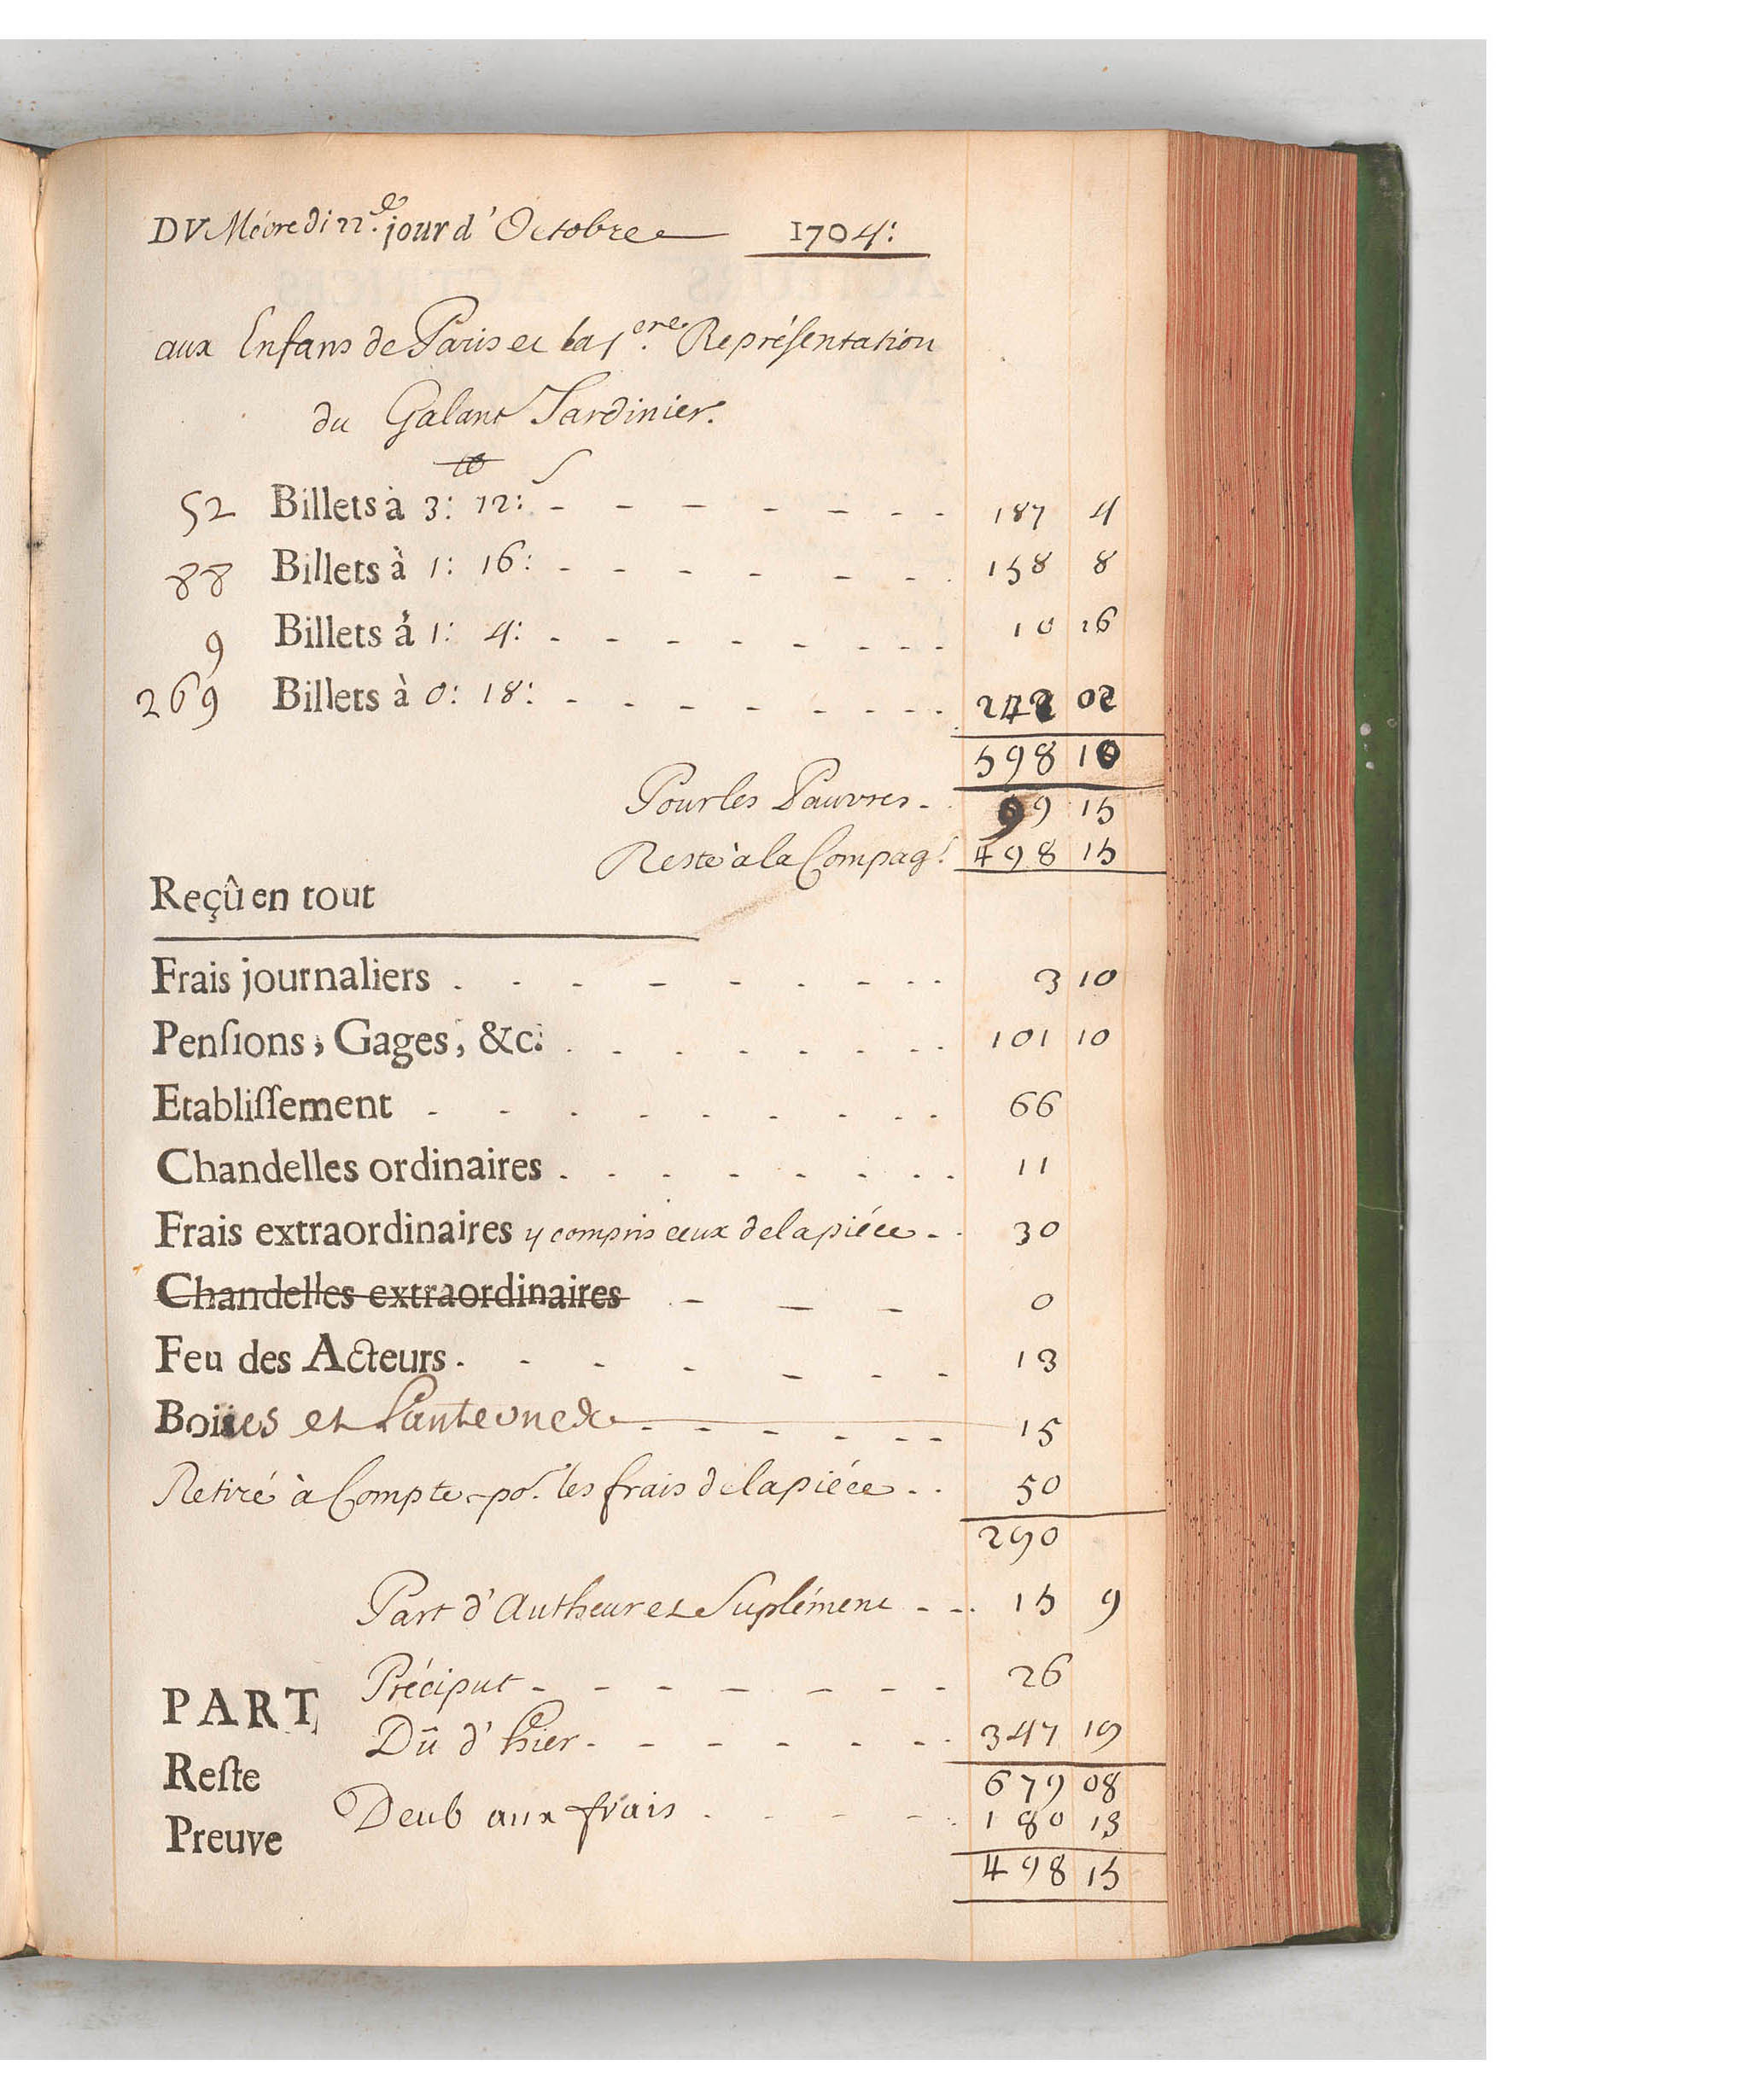 DV Mécredi 22.e jour d'Octobre 1704:
aux Enfans de Paris et la 1.ere Représentation
du Galant Jardinier.
tt s
52 Billets à 3: 12: 187 4
88 Billets à 1: 16: 158 8
9 Billets à 1: 4: 10 16
269 Billets à 0: 18: 242 02
598 10
Pour les Pauvres 99 15
Reste à la Compag.e 498 15
Reçû en tout
Frais journaliers 3 10
Penſions, Gages, &c. 101 10
Etabliſſement 66
Chandelles ordinaires 11
Frais extraordinaires y compris ceux de la piéce 30
Chandelles extraordinaires 0
Feu des Acteurs 13
Boiies et 15
Retiré à Compte po.r les frais de la piéce 50
290
Part d'Autheur et Suplément 15 9
Préciput 26
PART
Dû d'hier 347 19
679 08
Reſte
Deub aux frais 180 13
Preuve
498 15